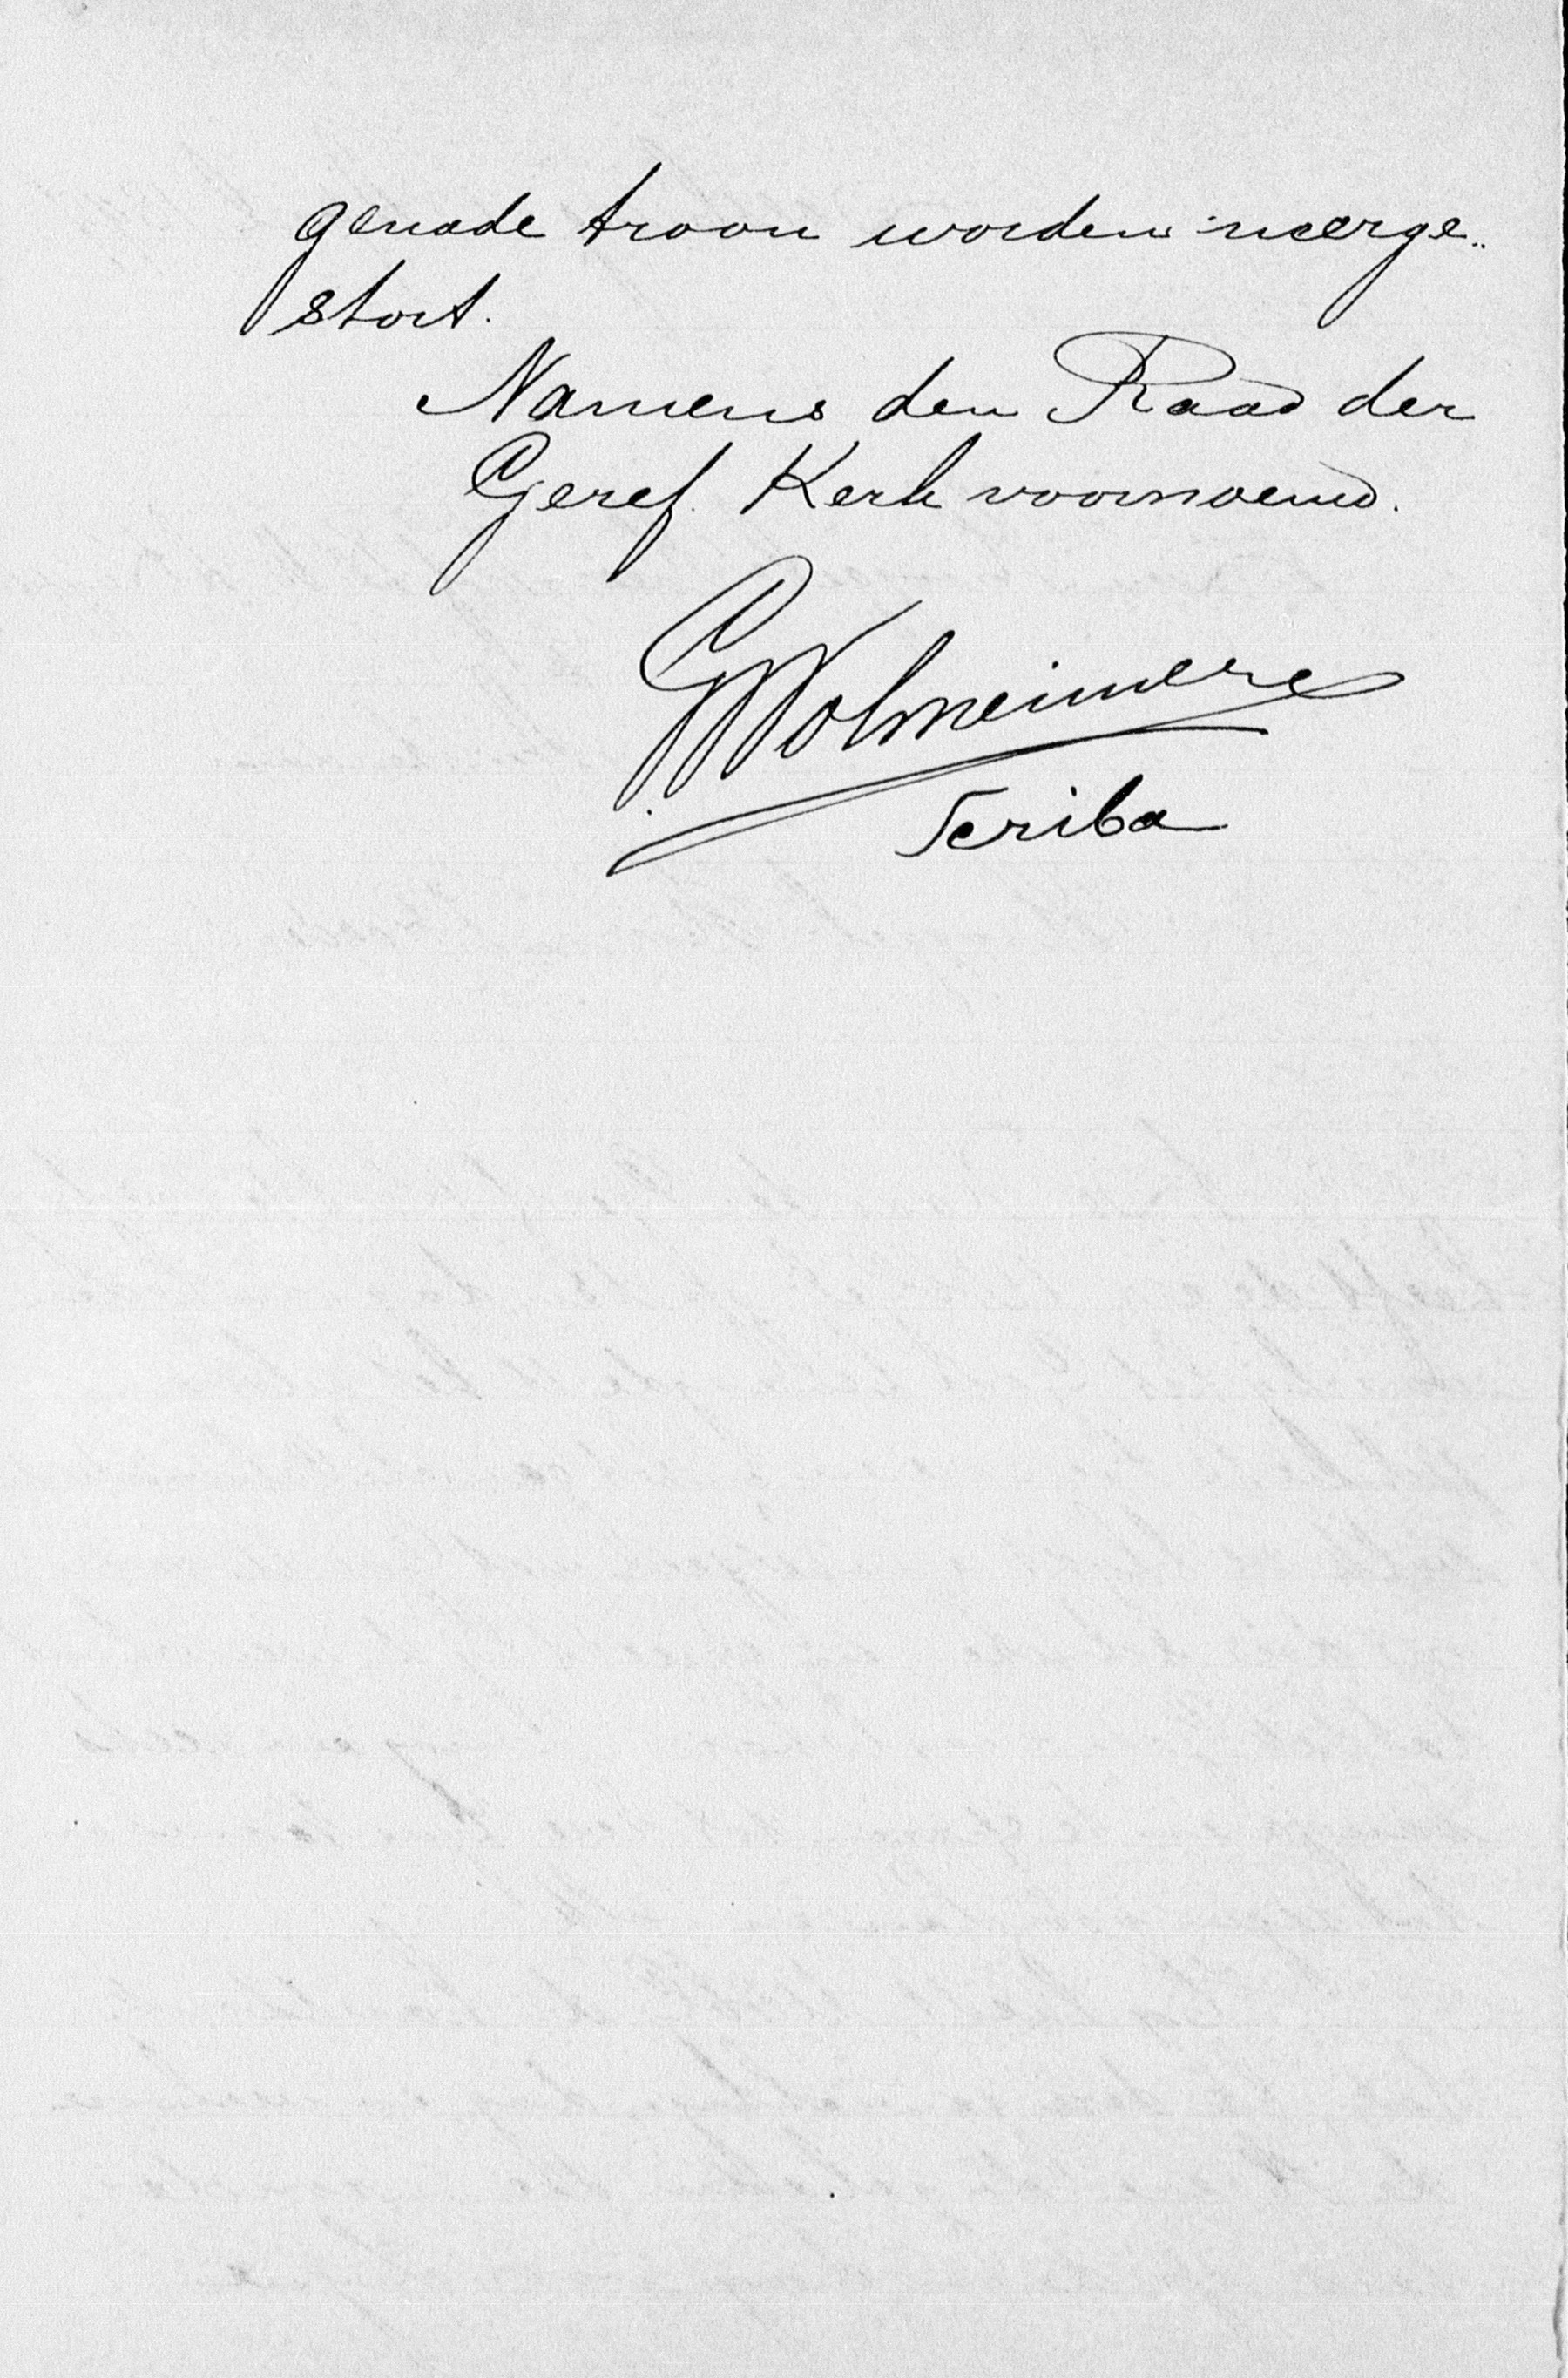 genade troon worden neerge„
stort.
Namens den Raad der
Geref. Kerk voornoemd.
Scriba